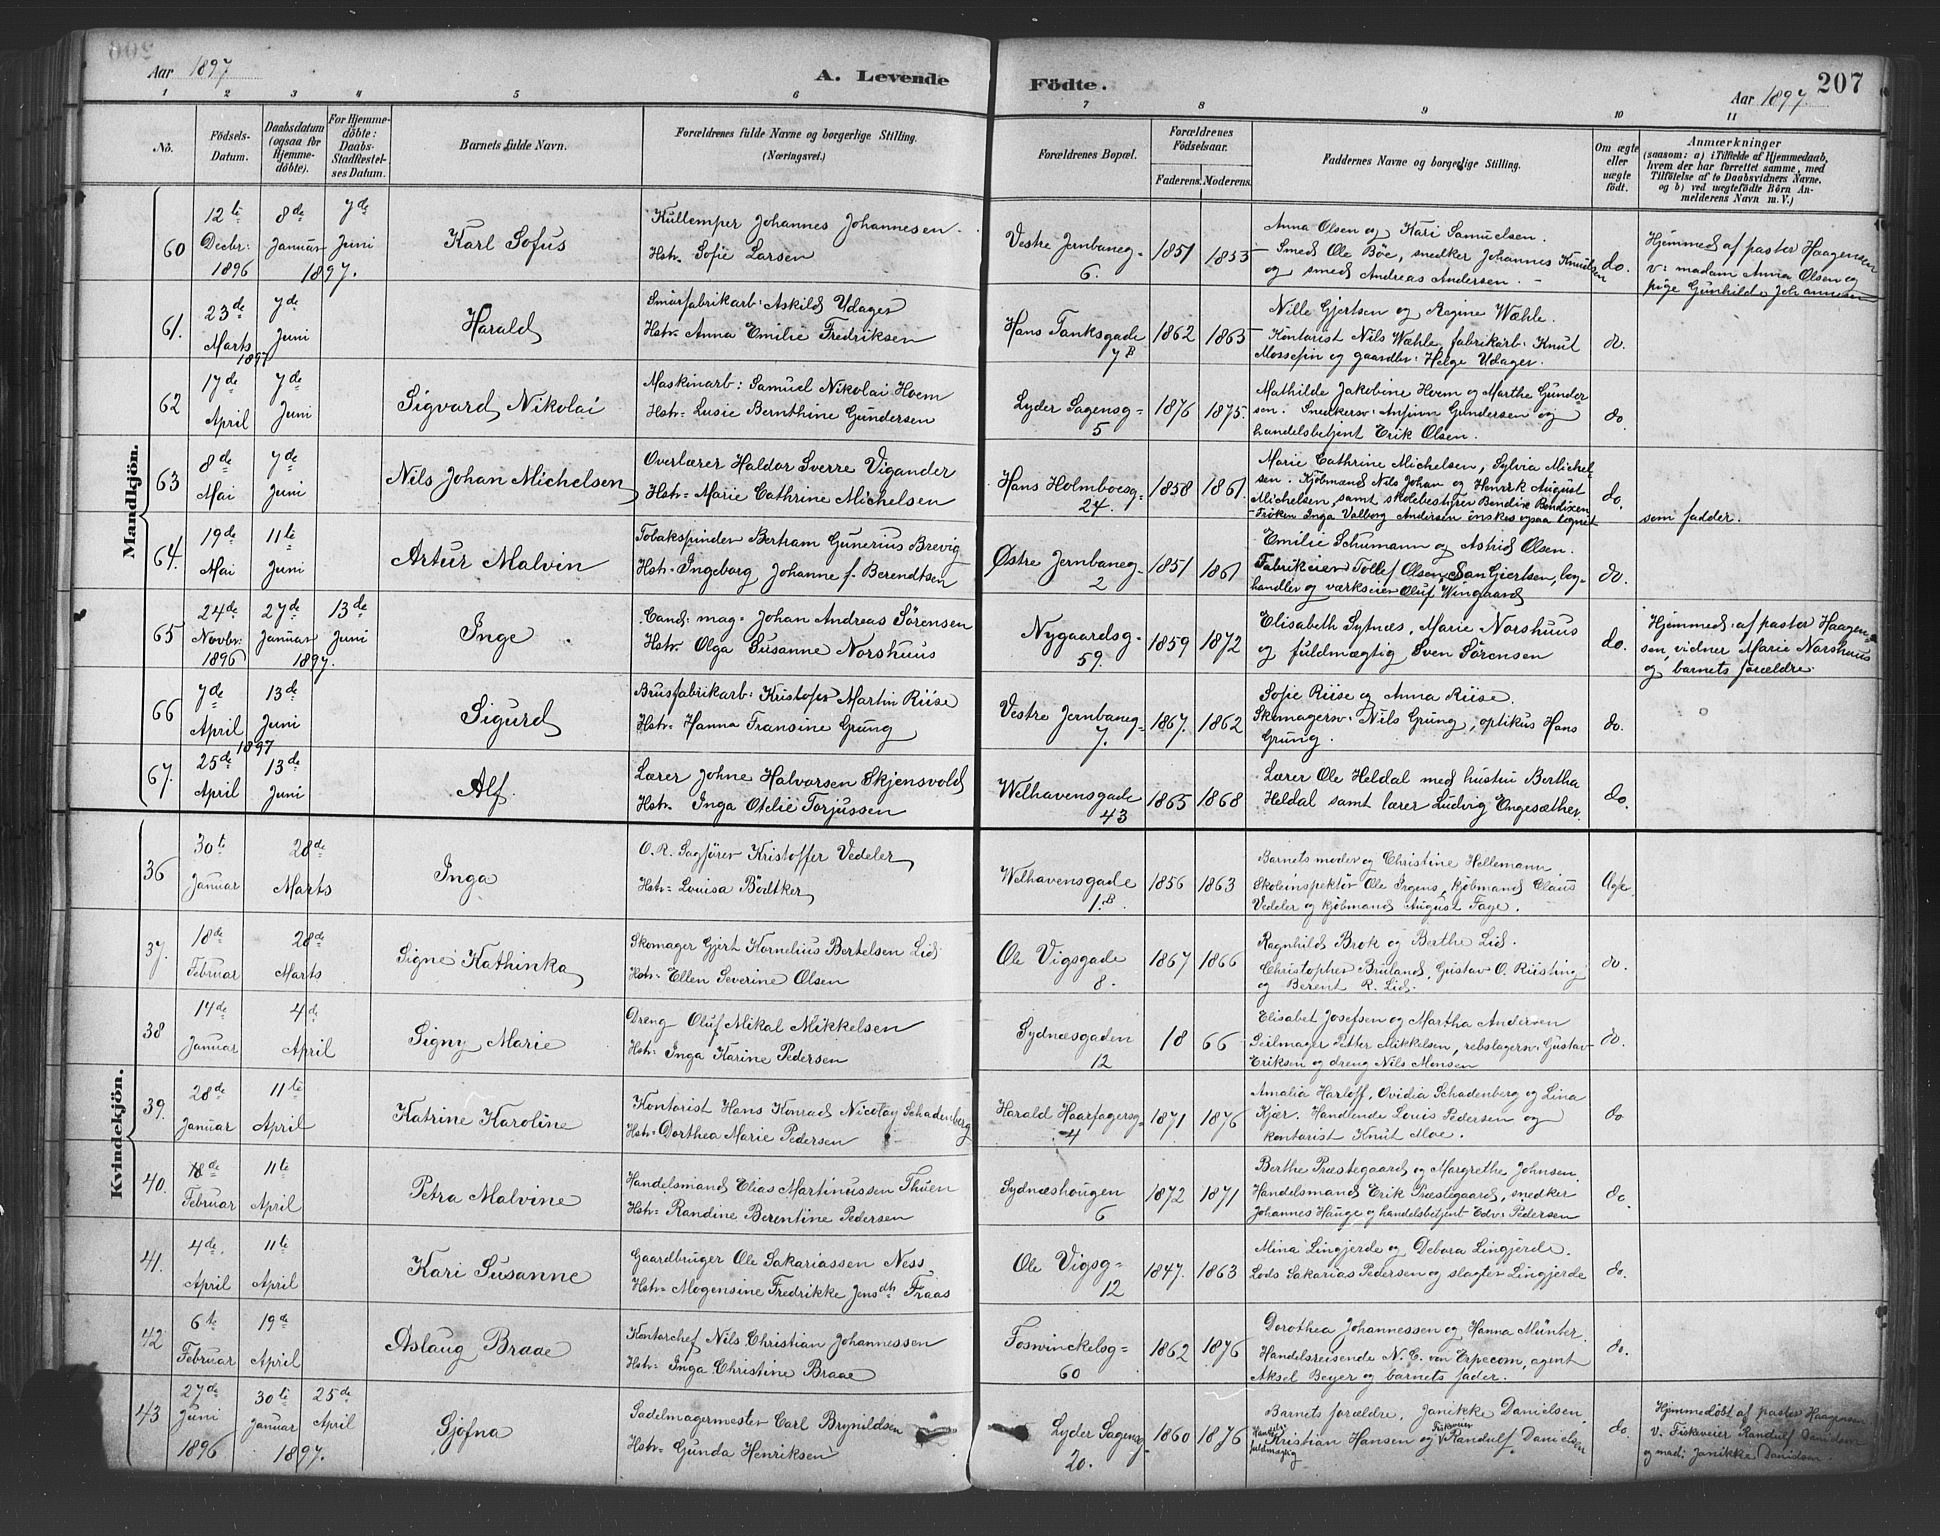 Aar 1897
A. Levende
Födte.
207
Aar 1897.
1 2 3 4 5 6 7 8 9 10 11
No.
Födsels-Datum.
Daabsdatum (ogsaa for Hjemme-döbte).
For Hjemme-döbte: Daabs-Stadfæstel-ses Datum.
Barnets fulde Navn.
Forældrenes fulde Navne og borgerlige Stilling.
(Næringsvei.)
Forældrenes Bopæl.
Forældrenes Födselsaar.
Faderens. Moderens.
Faddernes Navne og borgerlige Stilling.
Om ægte eller uægte födt.
Anmærkninger
(saasom: a) i Tilfælde af Hjemmedaab, hvem der har forrettet samme, med Tilföielse af to Daabsvidners Navne, og b) ved uægtefödte Börn An-melderens Navn m.V.)
Mandkjön.
60 12te Decbr: 1896 8de Januar 7de Juni 1897.
Karl Sofus
Kullemper Johannes Johannesen
Hstr. Sofie Larsen
Vestre Jernbaneg- 6.
1851 1853
Anna Olsen og Kari Samuelsen.
Smed Ole Böe, snedker Johannes Knudsen
og smed Andreas Andersen.
do.
Hjemmed: af pastor Haagensen
v: madam Anna Olsen og
pige Gunhilde Johannesen
61. 23de Marts 1897 7de Juni
Harald
Smörfabrikarb: Askild Udager
Hstr. Anna Emilie Fredriksen
Hans Tanksgade 7B
1862 1865
Nille Gjertsen og Regine Wæhle.
Kontorist Nils Wæhle, fabrikarb: Knut
Mossefin og gaardbr: Helge Udager.
do.
62 17de April 7de Juni
Sigvard Nikolai
Maskinarb: Samuel Nikolai Hvem
Hstr. Lusie Bernthine Gundersen
Lyder Sagensg- 5
1876 1875.
Mathilde Jakobine Hvem og Marthe Gunder-
sen. Snedkersv: Anfinn Gundersen og
handelsbetjent Erik Olsen.
do.
63 8de Mai 7de Juni
Nils Johan Michelsen
Overlærer Haldor Sverre Vigander
Hstr. Marie Cathrine Michelsen
Hans Holmboesg- 24.
1858 1861.
Marie Cathrine Michelsen, Sylvia Michel-
sen. Kjöbmænd Nils Johan og Henrik August
Michelsen samt skolebestyrer Bendix Bendixen
Fröken Inga Valborg Andersen önskes ogsaa tegnet
do.
som fadder.
64. 19de Mai 11te Juni
Artur Malvin
Tobakspinder Bertram Gunerius Brevig
Hstr. Ingeborg Johanne f. Berendtsen
Östre Jernbaneg- 2
1851 1861
Emilie Schumann og Astrid Olsen.
Fabrikeier Tollef Olsen, San Giertsen, bog-
handler og værkseier Oluf Wingaard
do.
65 24de Novbr. 1896 27de Januar 13de Juni 1897.
Inge
Cand: mag: Johan Andreas Sörensen
Hstr. Olga Susanne Norshuus
Nygaardsg- 59.
1859 1872
Elisabeth Sytnæs, Marie Norshuus
og fuldmægtig Sven Sörensen
do.
Hjemmed: af pastor Haagen-
sen, vidner Marie Norshuus
og barnets forældre
66 7de April 1897 13de Juni
Sigurd
Brusfabrikarb: Kristofer Martin Riise
Hstr. Hanna Fransine Grung
Vestre Jernbaneg- 7.
1867. 1862
Sofie Riise og Anna Riise.
Skomagersv: Nils Grung, optikus Hans
Grung.
do.
67. 25de April 13de Juni
Alf.
Lærer Johne Halvorsen Skjensvold
Hstr. Inga Otelie Torjussen
Welhavensgade 43
1865 1868
Lærer Ole Heldal med hustru Bertha
Heldal samt lærer Ludvig Engesæther.
do.
Kvindekjön.
36 30te Januar 28de Marts
Inga
O.R. Sagförer Kristoffer Vedeler
Hstr. Louisa Bödtker
Welhavensgade 1.B.
1856 1863
Barnets moder og Christine Hellemann
Skoleinspektör Ole Irgens, kjöbmand Claus
Vedeler og kjöbmand August Faye.
Ægte
37. 18de Februar 28de Marts
Signe Kathinka
Skomager Gjert Kornelius Bertelsen Lid
Hstr. Ellen Severine Olsen
Ole Vigsgade 8.
1867 1866
Ragnhild Brok og Berthe Lid.
Christopher Bruland, Gustav O. Riisting
og Berent R. Lid.
do.
38 14de Januar 4de April
Signy Marie
Dreng Oluf Mikal Mikkelsen
Hstr. Inga Karine Pedersen
Sydnæsgaden 12
18 66
Elisabet Josefsen og Martha Andersen
Seilmager Petter Mikkelsen, rebslagersv: Gustav
Eriksen og dreng Nils Monsen
do.
39. 28de Januar 11te April
Katrine Karoline
Kontorist Hans Konrad Nicolay Schadenberg
Hstr. Dorthea Marie Pedersen
Harald Haarfagersg- 4
1871 1876
Amalia Harloff, Ovidia Schadenberg og Lina
Kjær. Handlende Louis Pedersen og
kontorist Knut Moe.
do
40. 18de Februar 11te April
Petra Malvine
Handelsmand Elias Martinussen Thuen
Hstr. Randine Berentine Pedersen
Sydnæshougen 6
1872 1871
Berthe Præstegaard og Margrethe Johnsen.
Handelsmand Erik Præstegaard, snedker
Johannes Hauge og handelsbetjent Edv: Pedersen
do.
41. 4de April 11te April
Kari Susanne
Gaardbruger Ole Sakariassen Ness
Hstr. Mogensine Fredrikke Jensdtr Fraas
Ole Vigsg- 12
1847. 1863
Mina Lingjerde og Debora Lingjerde.
Lods Sakarias Pedersen og slagter Lingjerde
do.
42 6te Februar 19de April
Aslaug Braae
Kontorchef Nils Christian Johannessen
Hstr. Inga Christine Braae
Foswinckelsg- 60
1862 1876
Dorothea Johannessen og Hanna Münter.
Handelsreisende N. C. von Erpecom, agent
Aksel Beyer og barnets fader.
do.
43 27de Juni 1896 30te Januar 25de April 1897.
Gjöfna
Sadelmagermester Carl Brynildsen
Hstr. Gunda Henriksen
Lyder Sagensg 20.
1860 1876
Barnets forældre, Janikke Danielsen.
Kristian Hansen og Fiskveier Randulf Danielsen
do.
Hjemmedöbt af pastor Haagensen
V. Fiskveier Randulf Danielsen
og mad: Janikke Danielsen.